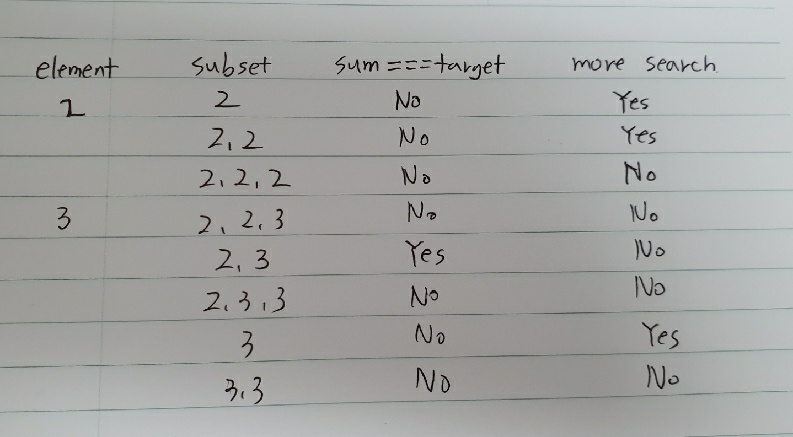 element subset sum===target more search
2 2 No Yes
2,2 No Yes
2,2,2 No No
3 2,2,3 No No
2,3 Yes No
2,3,3 No No
3 No Yes
3,3 No No